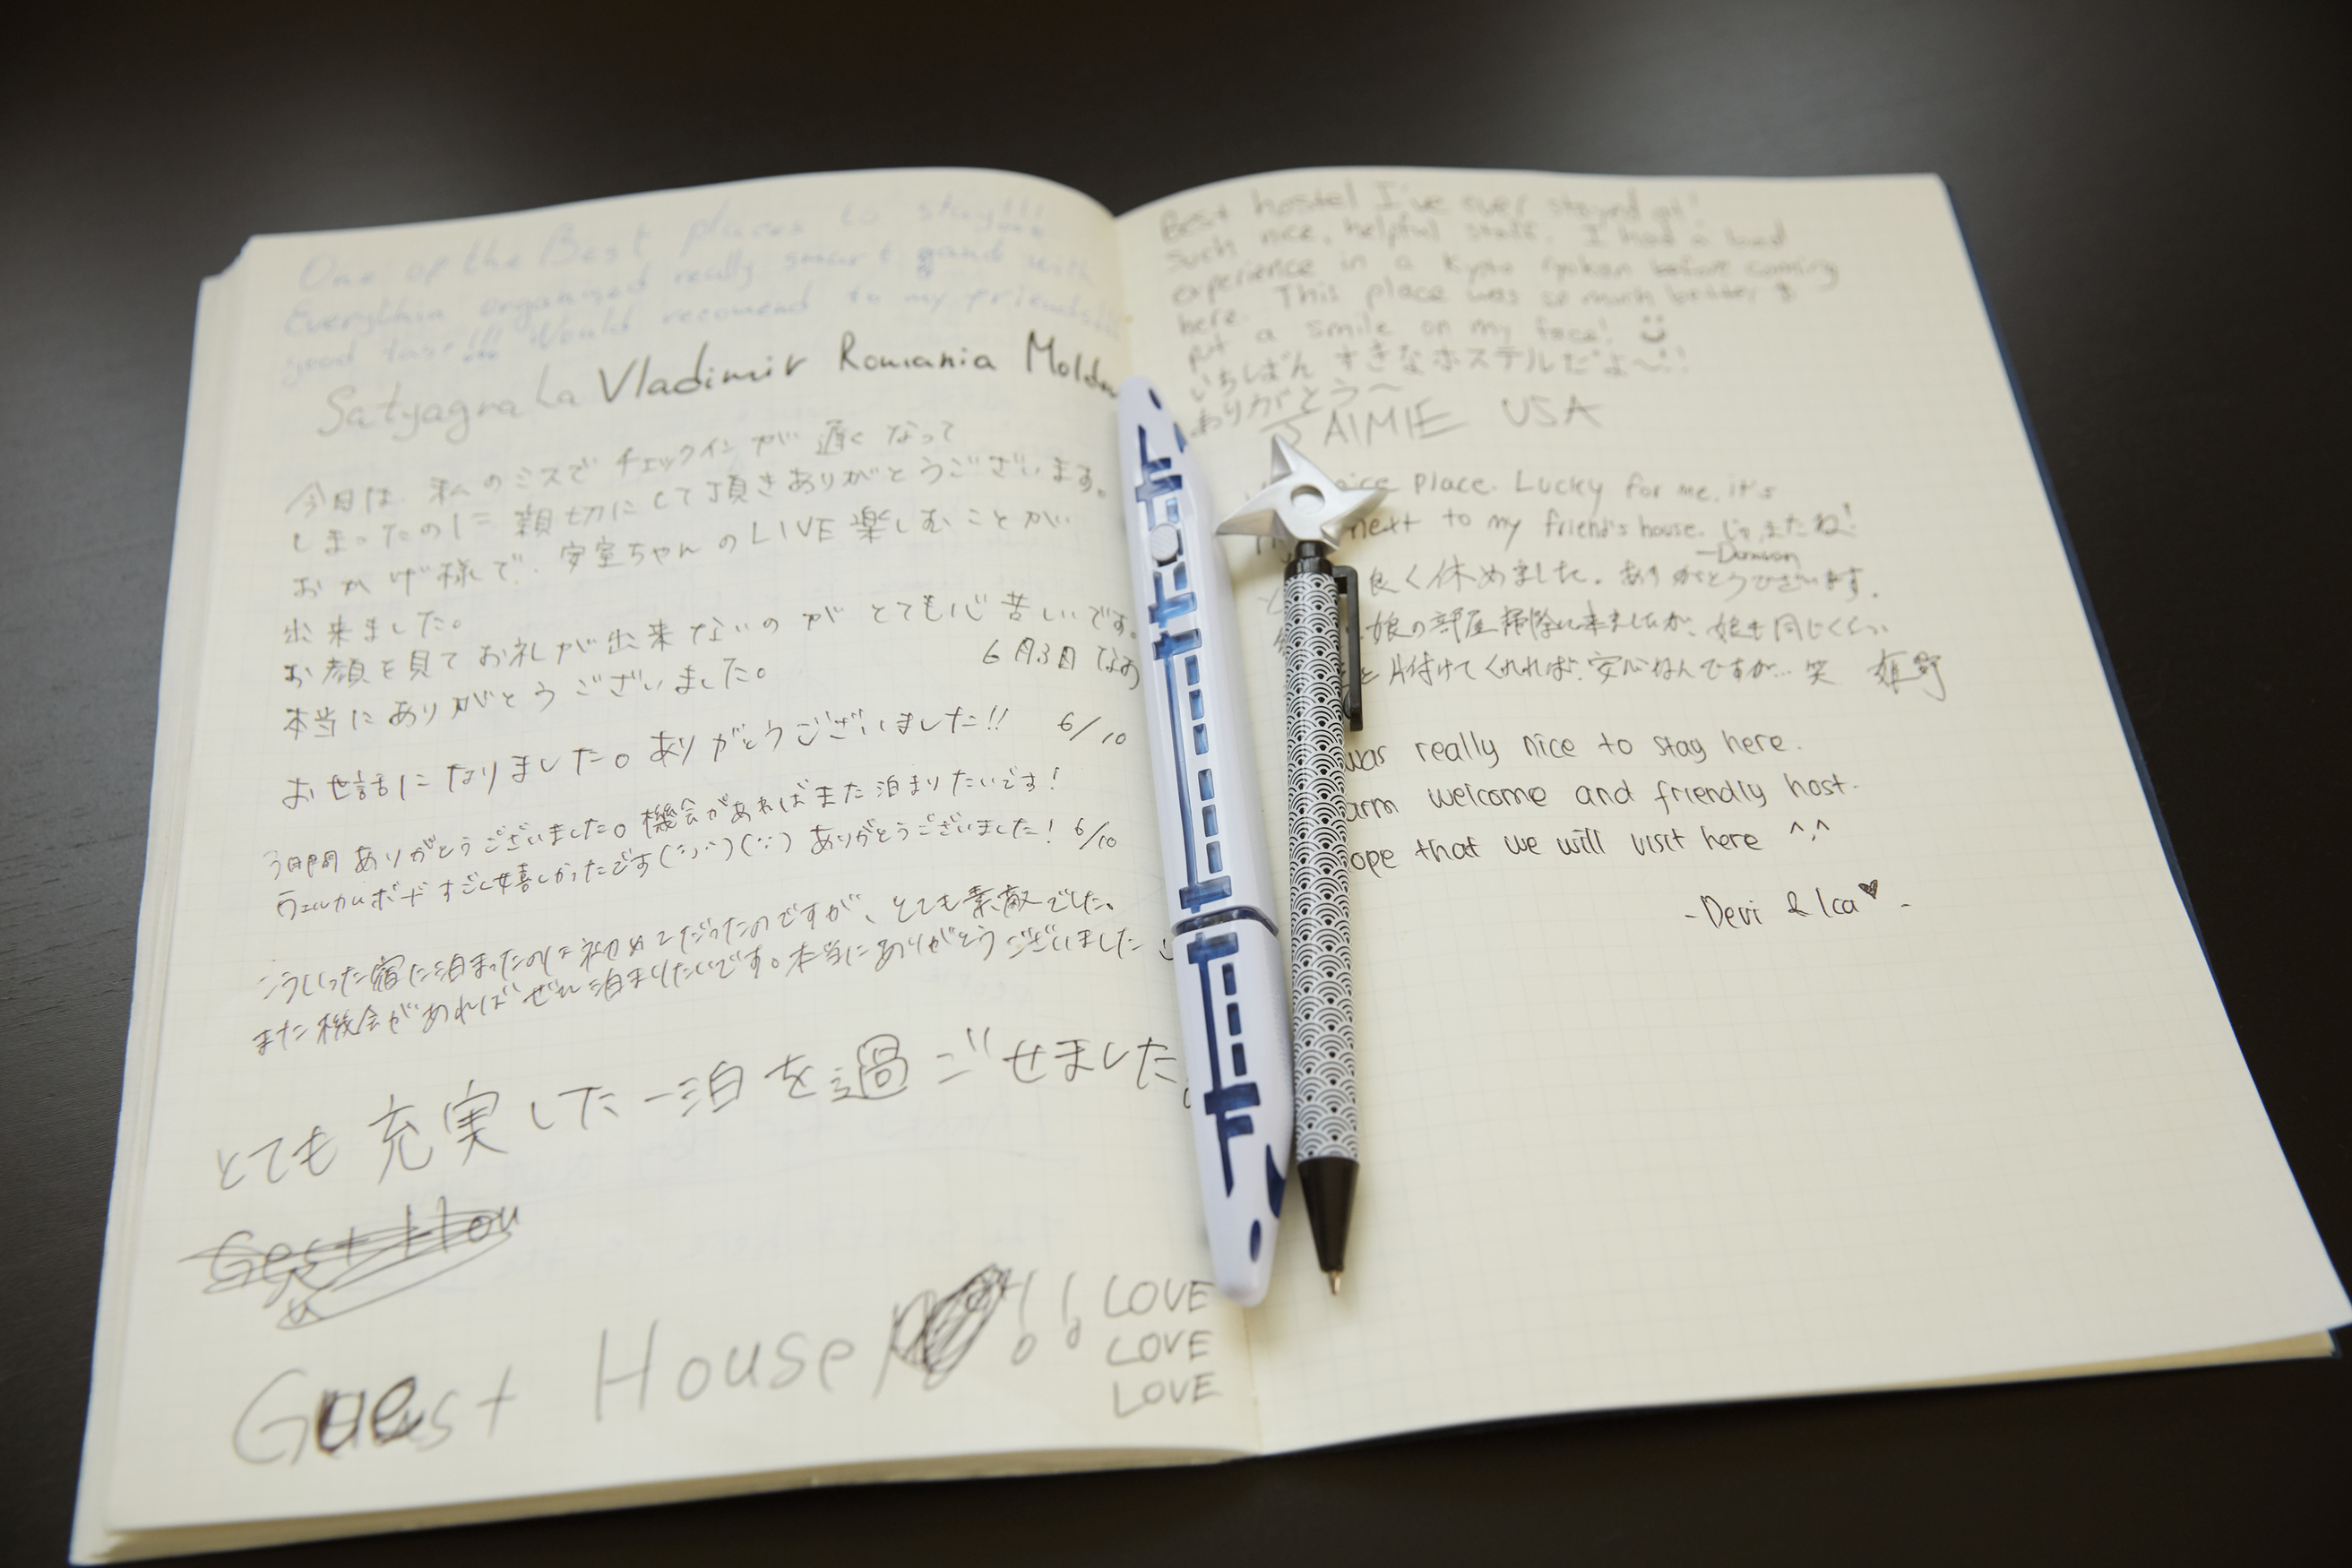 One of the Best places to stay!!!
Everythin organized really smart and with
good tase!!! Would recomend to my friends
Satyagraha Vladimir Romania Moldov
今日は、私のミスで チェックインが 遅くなって
しまったのに 親切にして頂きありがとうございます。
おかげ様で、安室ちゃんのLIVE 楽しむことが
出来ました。
お顔を見てお礼が出来ないのが とても心苦しいです。
本当にありがとうございました。 6月3日 なお
お世話になりました。ありがとうございました!! 6/10
3日間 ありがとうございました。機会があればまた泊まりたいです!
ウェルカムボード すごく嬉しかったです ありがとうございました! 6/10
こういった宿に泊まったのは初めてだったのですが、とても素敵でした。
また機会があれば ぜひ泊まりたいです。本当にありがとうございました
とても 充実した一泊を過ごせました。
Gest Hou
Guest House !! LOVE
LOVE
LOVE
Best hostel I've ever stayed at!
Such nice, helpful staff. I had a bad
experience in a Kyoto ryokan before coming
here. This place was so much better &
put a smile on my face!
いちばん すきなホステルだよ〜!!
ありがとう〜
JAIMIE USA
nice place. Lucky for me, it's
next to my friend's house. じゃ、またね!
-Damian
良く休めました。ありがとうございます。
娘の部屋掃除に来ましたが、娘も同じくらい
と片付けてくれれば、安心なんですが… 笑
was really nice to stay here.
arm welcome and friendly host.
ope that we will visit here ^.^
- Devi & Ica ♥ -